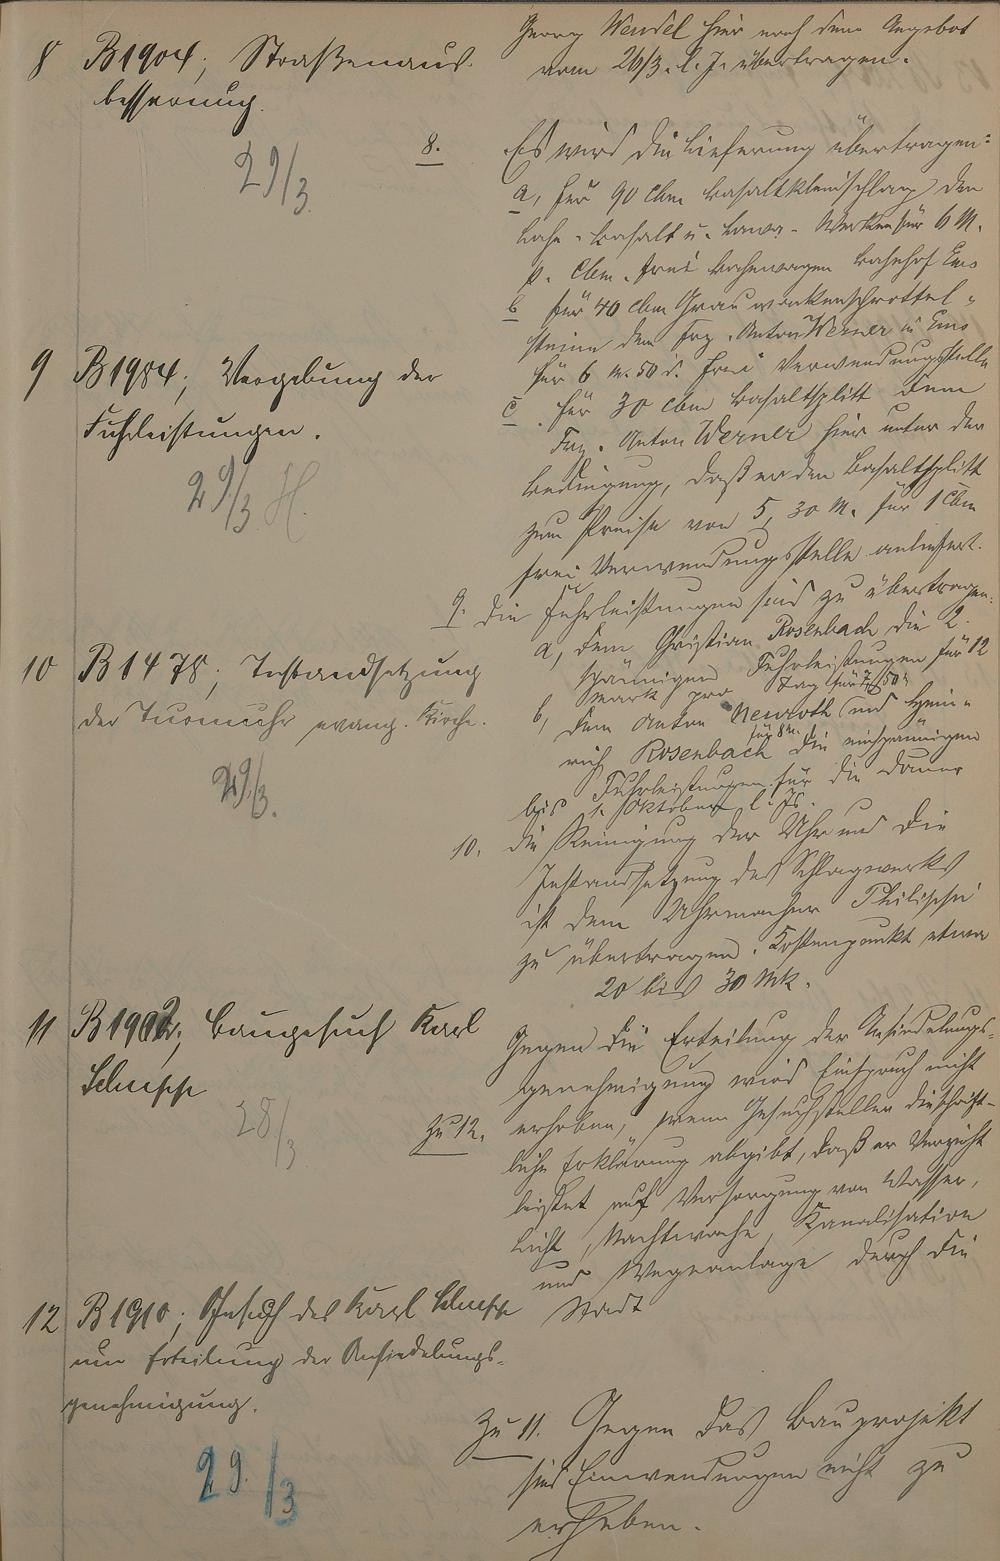 8 B 1904; Straßenaus-
besserung.
29/3.
9 B 1984; Vergebung der
Fuhrleistungen.
29/3. H.
10 B 1478; Instandsetzung
der Turmuhr evang. Kirche.
29/3.
11 B 1902; Baugesuch Karl
Schupp
28/3
12 B 1910; Gesuch des Karl Schupp
um Erteilung der Ansiedelungs-
genehmigung.
29./3
Georg Wendel hier nach dem Angebot
vom 26/3. l. J. übertragen.
8. Es wird die Lieferung übertragen:
a, für 90 cbm Basaltkleinschlag den
Basalt u. Lava-Werken für 6 M.
p. cbm. frei Bahnwagen Bahnhof Ems
b für 40 cbm Grauwackenschrottel-
steine dem Frz. Anton Werner in Ems
für 6 M. 50 d. frei Verwendungsstelle
c. für 30 cbm Basaltsplitt dem
Frz. Anton Werner hier unter der
Bedingung, daß er den Basaltsplitt
zum Preise von 5,30 M. für 1 cbm
frei Verwendungsstelle anliefert.
9. Die Fuhrleistungen sind zu übertragen:
a, dem Christian Rosenbach die 2.
spännigen Fuhrleistungen für 12
Mark pro Tag für 7,50 M
b, dem Anton Newroth und Hein-
für 8 M.
rich Rosenbach die einspännigen
Fuhrleistungen für die Dauer
bis 1. Oktober l. Js.
10. Die Reinigung der Uhr und die
Instandsetzung des Schlagwerks
ist dem Uhrmacher Philippi
zu übertragen. Kostenpunkt etwa
20 bis 30 Mk.
Gegen die Erteilung der Ansiedelungs-
genehmigung wird Einspruch nicht
zu 12. erhoben, wenn Gesuchsteller die schrift-
liche Erklärung abgibt, daß er Verzicht
leistet auf Versorgung von Wasser,
Licht, Nachtwache, Kanalisation
und Wegeanlage durch die
Stadt
Zu 11. Gegen das Bauprojekt
sind Einwendungen nicht zu
erheben.